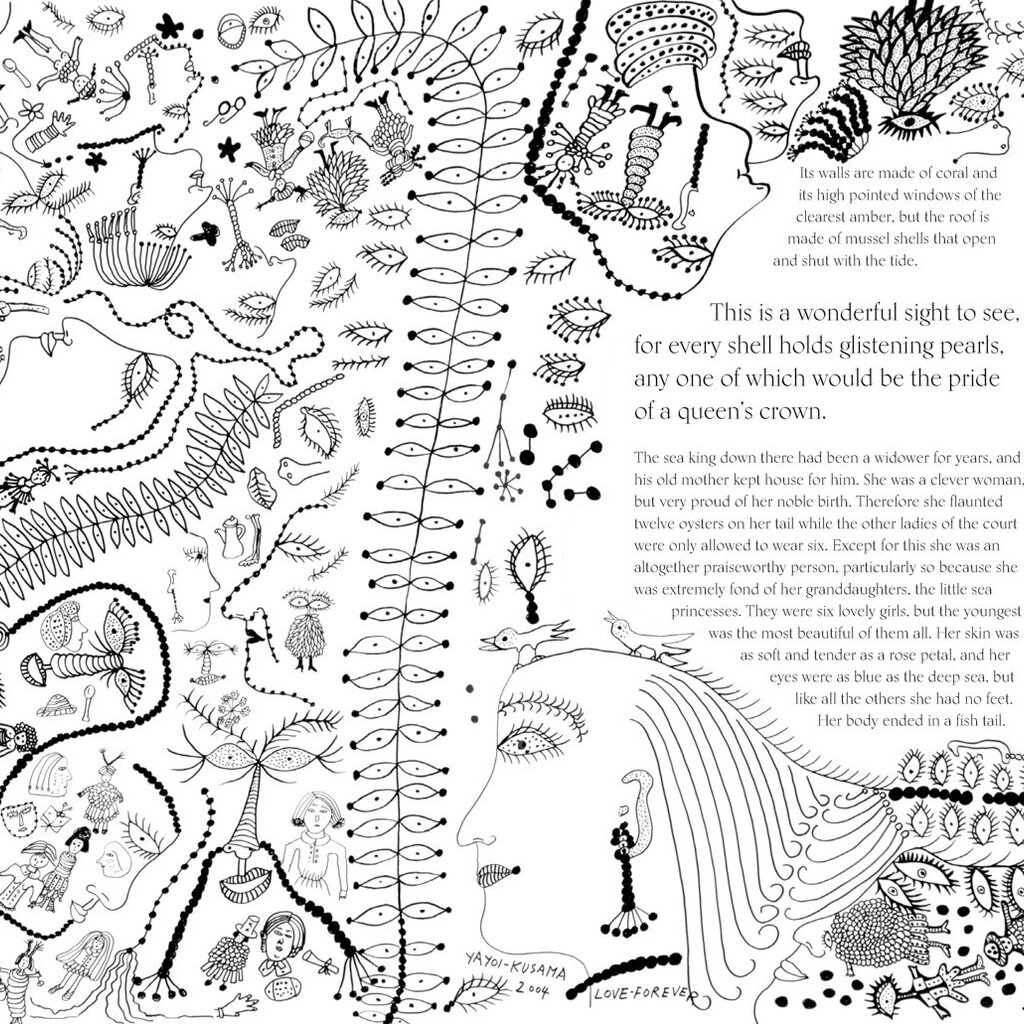 Its walls are made of coral and
its high pointed windows of the
clearest amber, but the roof is
made of mussel shells that open
and shut with the tide.
This is a wonderful sight to see,
for every shell holds glistening pearls,
any one of which would be the pride
of a queen's crown.
The sea king down there had been a widower for years, and
his old mother kept house for him. She was a clever woman,
but very proud of her noble birth. Therefore she flaunted
twelve oysters on her tail while the other ladies of the court
were only allowed to wear six. Except for this she was an
altogether praiseworthy person, particularly so because she
was extremely fond of her granddaughters, the little sea
princesses. They were six lovely girls, but the youngest
was the most beautiful of them all. Her skin was
as soft and tender as a rose petal, and her
eyes were as blue as the deep sea, but
like all the others she had no feet.
Her body ended in a fish tail.
YAYOI-KUSAMA
2004
LOVE-FOREVER